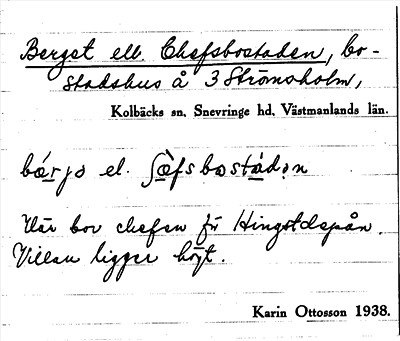 Berget ell. Chefsbostaden, bo-
stadshus å 3 Strömsholm,
Kolbäcks sn, Snevringe hd, Västmanlands län.
bárjə el. ʃæ̀fsbostádən
Där bor chefen för Hingstdepån.
Villan ligger högt.
Karin Ottosson 1938.